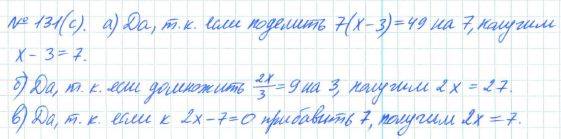 № 131(с). а) Да, т.к. если поделить 7(x-3)=49 на 7, получим
x-3=7.
б) Да, т.к. если домножить 2x/3=9 на 3, получим 2x=27.
в) Да, т.к. если к 2x-7=0 прибавить 7, получим 2x=7.